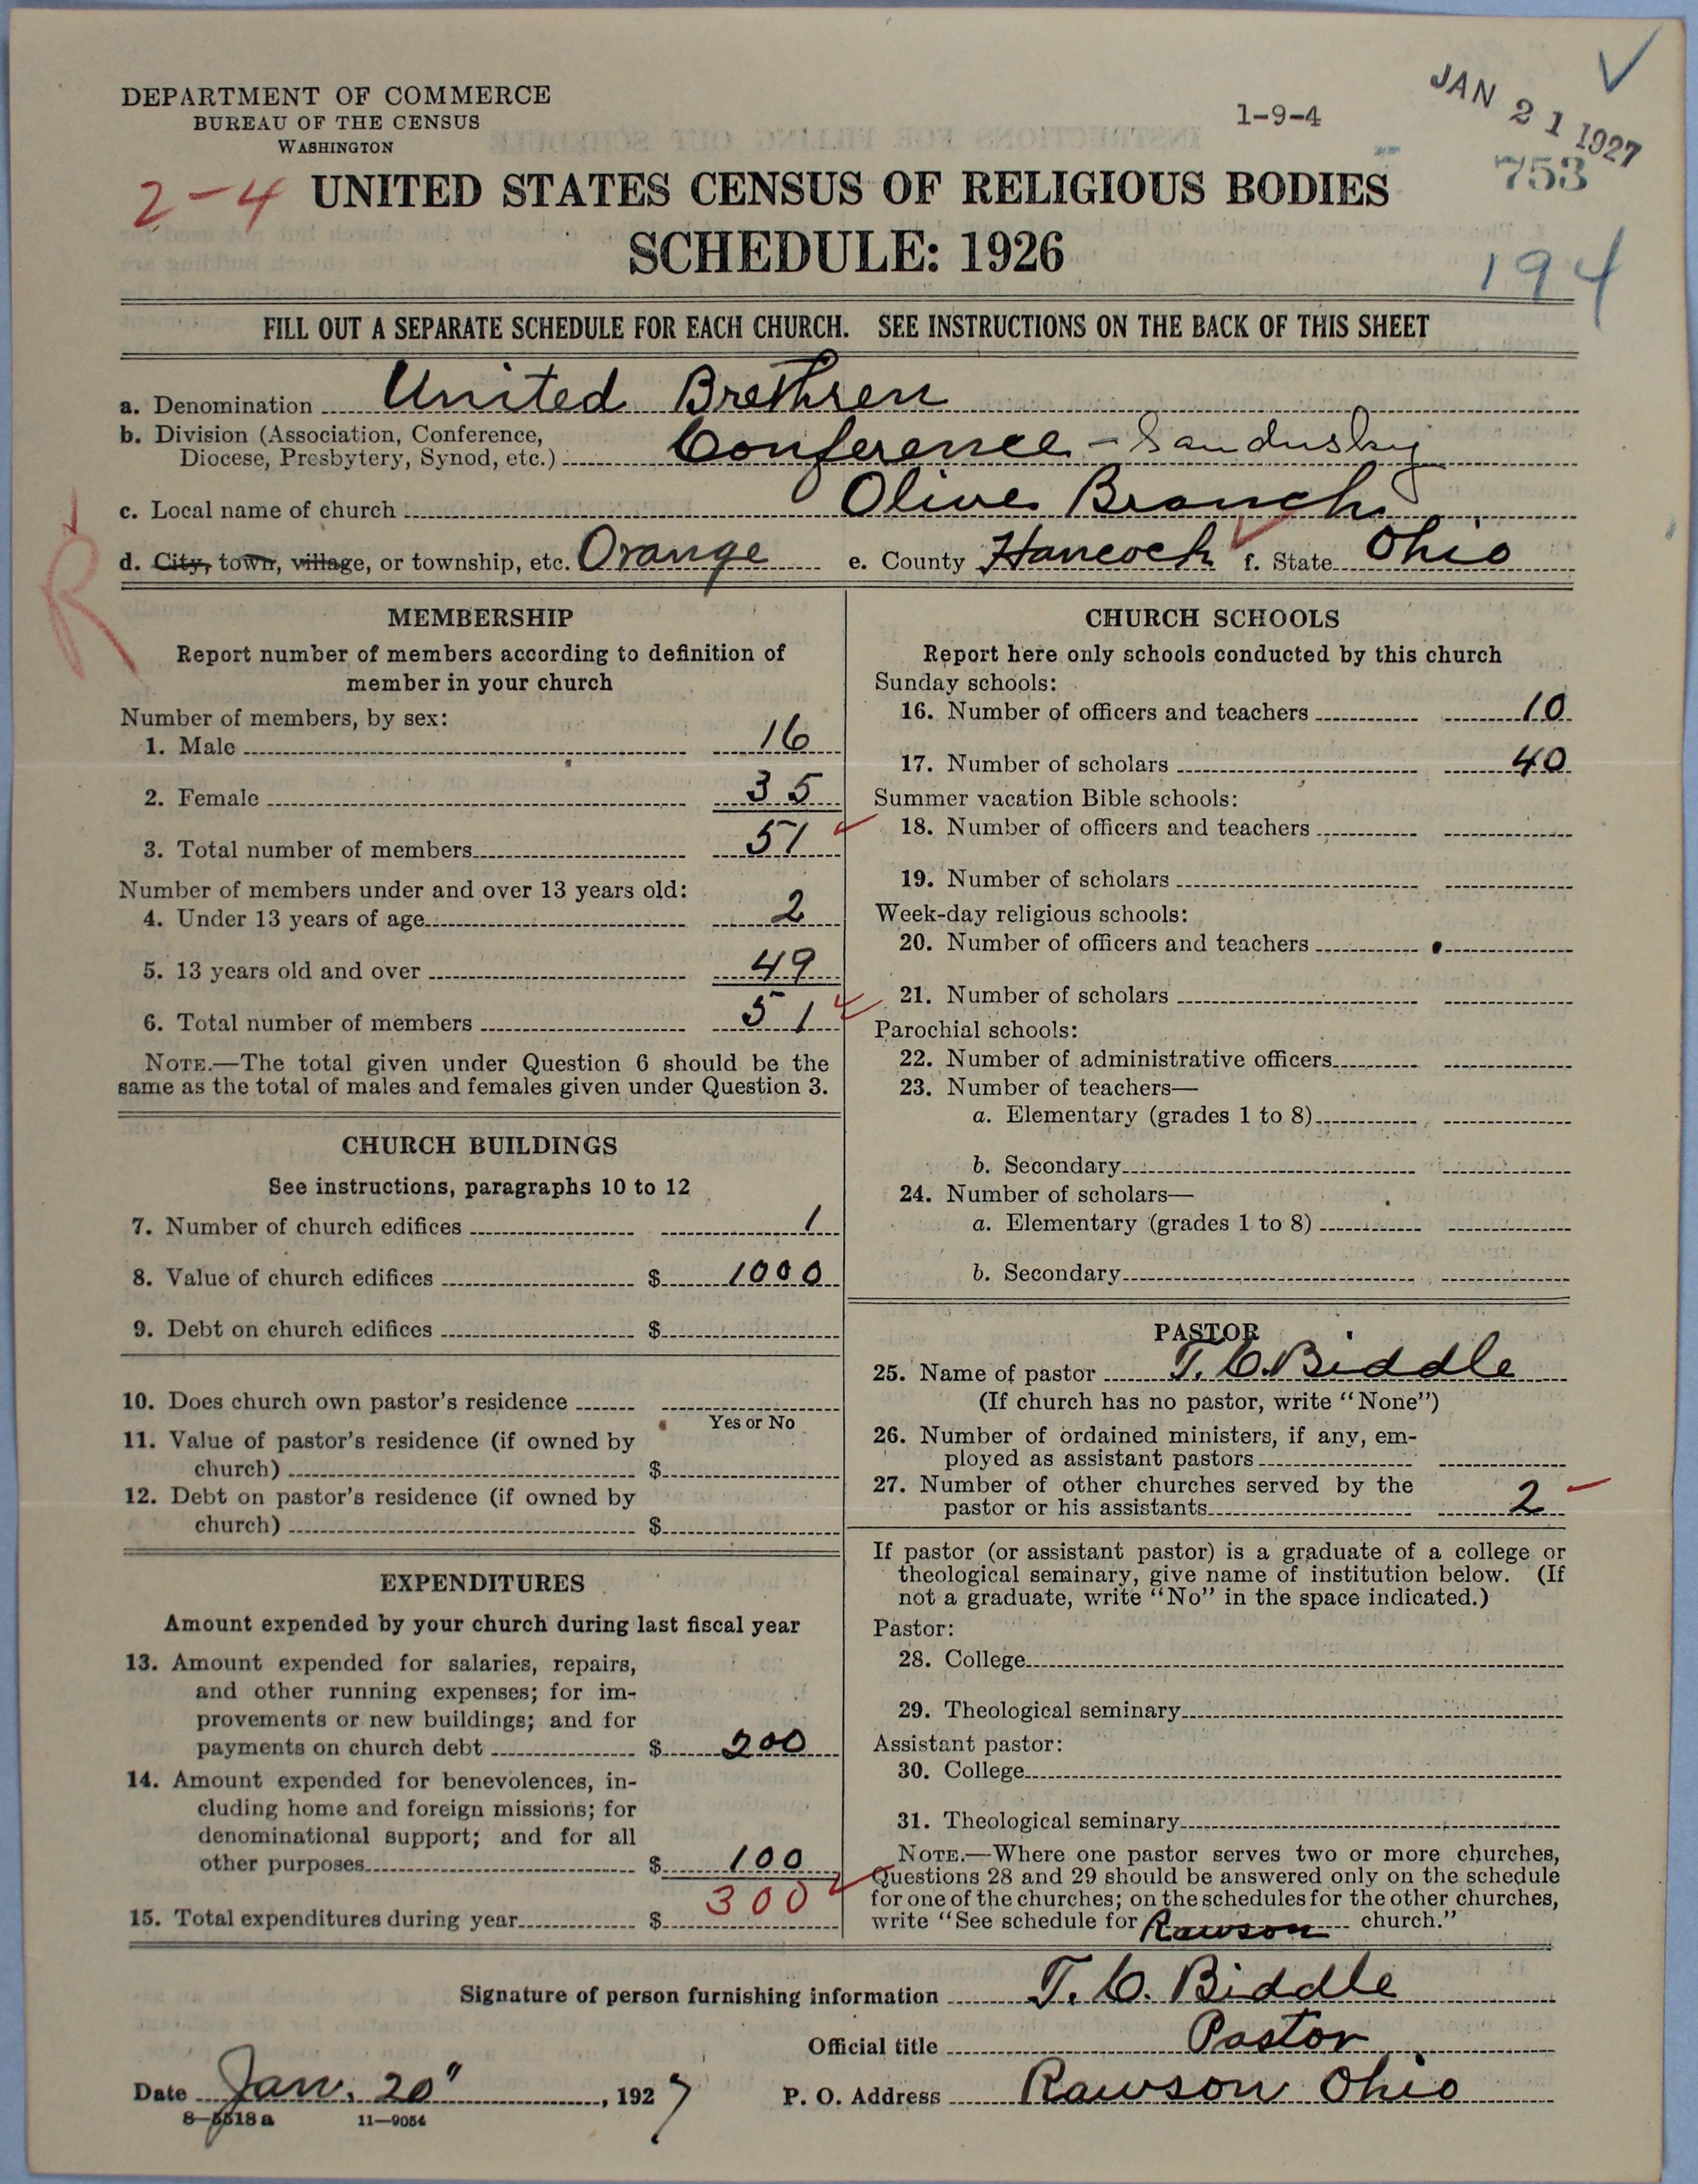 DEPARTMENT OF COMMERCE
BUREAU OF THE CENSUS
WASHINGTON
1-9-4
JAN 21 1927
753
2-4
UNITED STATES CENSUS OF RELIGIOUS BODIES
SCHEDULE: 1926
194
FILL OUT A SEPARATE SCHEDULE FOR EACH CHURCH. SEE INSTRUCTIONS ON THE BACK OF THIS SHEET
a. Denomination United Brethren
b. Division (Association, Conference,
Diocese, Presbytery, Synod, etc.) Conference - Sandusky
c. Local name of church Olive Branch
d. City, town, village, or township, etc. Orange e. County Hancock f. State Ohio
R
MEMBERSHIP
Report number of members according to definition of
member in your church
Number of members, by sex:
1. Male 16
2. Female 35
3. Total number of members 51
Number of members under and over 13 years old:
4. Under 13 years of age 2
5. 13 years old and over 49
6. Total number of members 51
NOTE.—The total given under Question 6 should be the
same as the total of males and females given under Question 3.
CHURCH BUILDINGS
See instructions, paragraphs 10 to 12
7. Number of church edifices 1
8. Value of church edifices $ 1000
9. Debt on church edifices $
10. Does church own pastor's residence
Yes or No
11. Value of pastor's residence (if owned by
church) $
12. Debt on pastor's residence (if owned by
church) $
EXPENDITURES
Amount expended by your church during last fiscal year
13. Amount expended for salaries, repairs,
and other running expenses; for im-
provements or new buildings; and for
payments on church debt $ 200
14. Amount expended for benevolences, in-
cluding home and foreign missions; for
denominational support; and for all
other purposes $ 100
15. Total expenditures during year $ 300
CHURCH SCHOOLS
Report here only schools conducted by this church
Sunday schools:
16. Number of officers and teachers 10
17. Number of scholars 40
Summer vacation Bible schools:
18. Number of officers and teachers
19. Number of scholars
Week-day religious schools:
20. Number of officers and teachers
21. Number of scholars
Parochial schools:
22. Number of administrative officers
23. Number of teachers—
a. Elementary (grades 1 to 8)
b. Secondary
24. Number of scholars—
a. Elementary (grades 1 to 8)
b. Secondary
PASTOR
25. Name of pastor T. C. Biddle
(If church has no pastor, write "None")
26. Number of ordained ministers, if any, em-
ployed as assistant pastors
27. Number of other churches served by the
pastor or his assistants 2
If pastor (or assistant pastor) is a graduate of a college or
theological seminary, give name of institution below. (If
not a graduate, write "No" in the space indicated.)
Pastor:
28. College
29. Theological seminary
Assistant pastor:
30. College
31. Theological seminary
NOTE.—Where one pastor serves two or more churches,
Questions 28 and 29 should be answered only on the schedule
for one of the churches; on the schedules for the other churches,
write "See schedule for Rawson church."
Signature of person furnishing information T. C. Biddle
Official title Pastor
Date Jan. 20", 1927 P. O. Address Rawson Ohio
8—5518a 11—9054